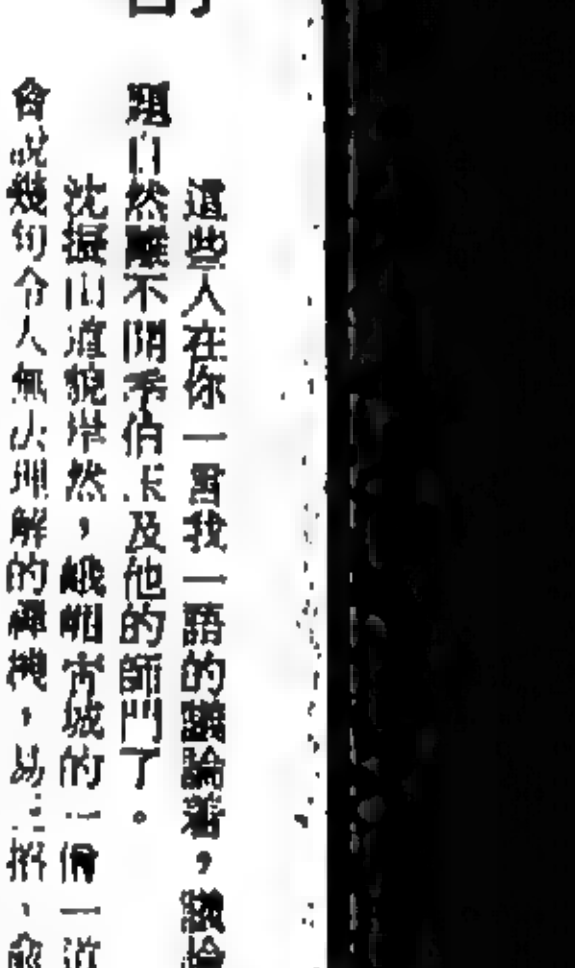 這些人在你一言我一語的議論着，議論
題自然離不開希伯來及他的師門了。
沈振山道貌岸然，峨嵋青城的一僧一道
會說幾句令人無法理解的禪機，易